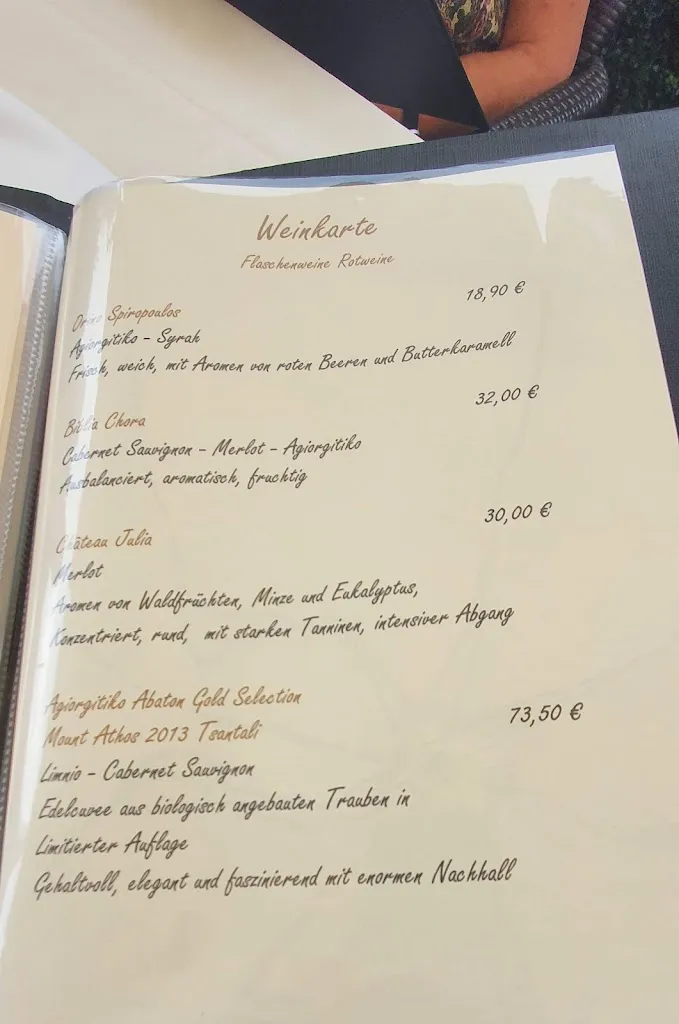 Weinkarte
Flaschenweine Rotweine
18,90 €
Orino Spiropoulos
Agiorgitiko - Syrah
Frisch, weich, mit Aromen von roten Beeren und Butterkaramell
32,00 €
Biblia Chora
Cabernet Sauvignon - Merlot - Agiorgitiko
Ausbalanciert, aromatisch, fruchtig
30,00 €
Château Julia
Merlot
Aromen von Waldfrüchten, Minze und Eukalyptus,
Konzentriert, rund, mit starken Tanninen, intensiver Abgang
Agiorgitiko Abaton Gold Selection
Mount Athos 2013 Tsantali
73,50 €
Limnio - Cabernet Sauvignon
Edelcuvee aus biologisch angebauten Trauben in
Limitierter Auflage
Gehaltvoll, elegant und faszinierend mit enormen Nachhall